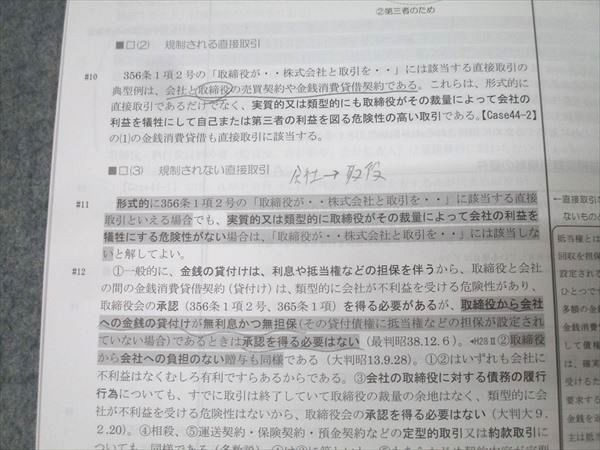 ②第三者のため
■□(2) 規制される直接取引
#10 356条1項2号の「取締役が・・株式会社と取引を・・」には該当する直接取引の
典型例は、会社と取締役の売買契約や金銭消費貸借契約である。これらは、形式的に
直接取引であるだけでなく、実質的又は類型的にも取締役がその裁量によって会社の
利益を犠牲にして自己または第三者の利益を図る危険性の高い取引である。【Case44-2】
の(1)の金銭消費貸借も直接取引に該当する。
■□(3) 規制されない直接取引
会社→取役
#11 形式的に356条1項2号の「取締役が・・株式会社と取引を・・」に該当する直接
取引といえる場合でも、実質的又は類型的に取締役がその裁量によって会社の利益を
犠牲にする危険性がない場合は、「取締役が・・株式会社と取引を・・」には該当しな
いと解してよい。
#12 ①一般的に、金銭の貸付けは、利息や抵当権などの担保を伴うから、取締役と会社
の間の金銭消費貸借契約(貸付け)は、類型的に会社が不利益を受ける危険性があり、
取締役会の承認(356条1項2号、365条1項)を得る必要があるが、取締役から会社
への金銭の貸付けが無利息かつ無担保(その貸付債権に抵当権などの担保が設定され
ていない場合)であるときは承認を得る必要はない(最判昭38.12.6)。◀H28Ⅱ②取締役
から会社への負担のない贈与も同様である(大判昭13.9.28)。①②はいずれも会社に
不利益はなくむしろ有利ですらあるからである。③会社の取締役に対する債務の履行
行為についても、すでに取引は終了していて取締役の裁量の余地はなく、類型的に会
社が不利益を受ける危険性はないから、取締役会の承認を得る必要はない(大判大9.
2.20)。④相殺、⑤運送契約・保険契約・預金契約などの定型的取引又は約款取引に
ついても、同様である(多数説)。
←直接取引
ないものと
抵当権とは
回収を担保
設定される
ひとつです
多額の金銭
金銭消費
して債権
は、確実
受けるた
要求する
金銭を返
主は抵当